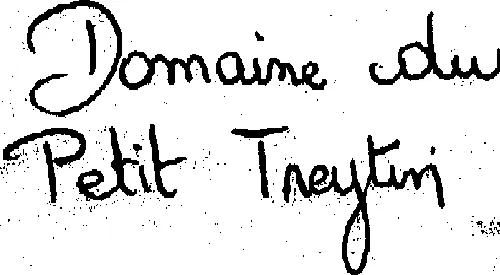 Domaine du
Petit Treytin